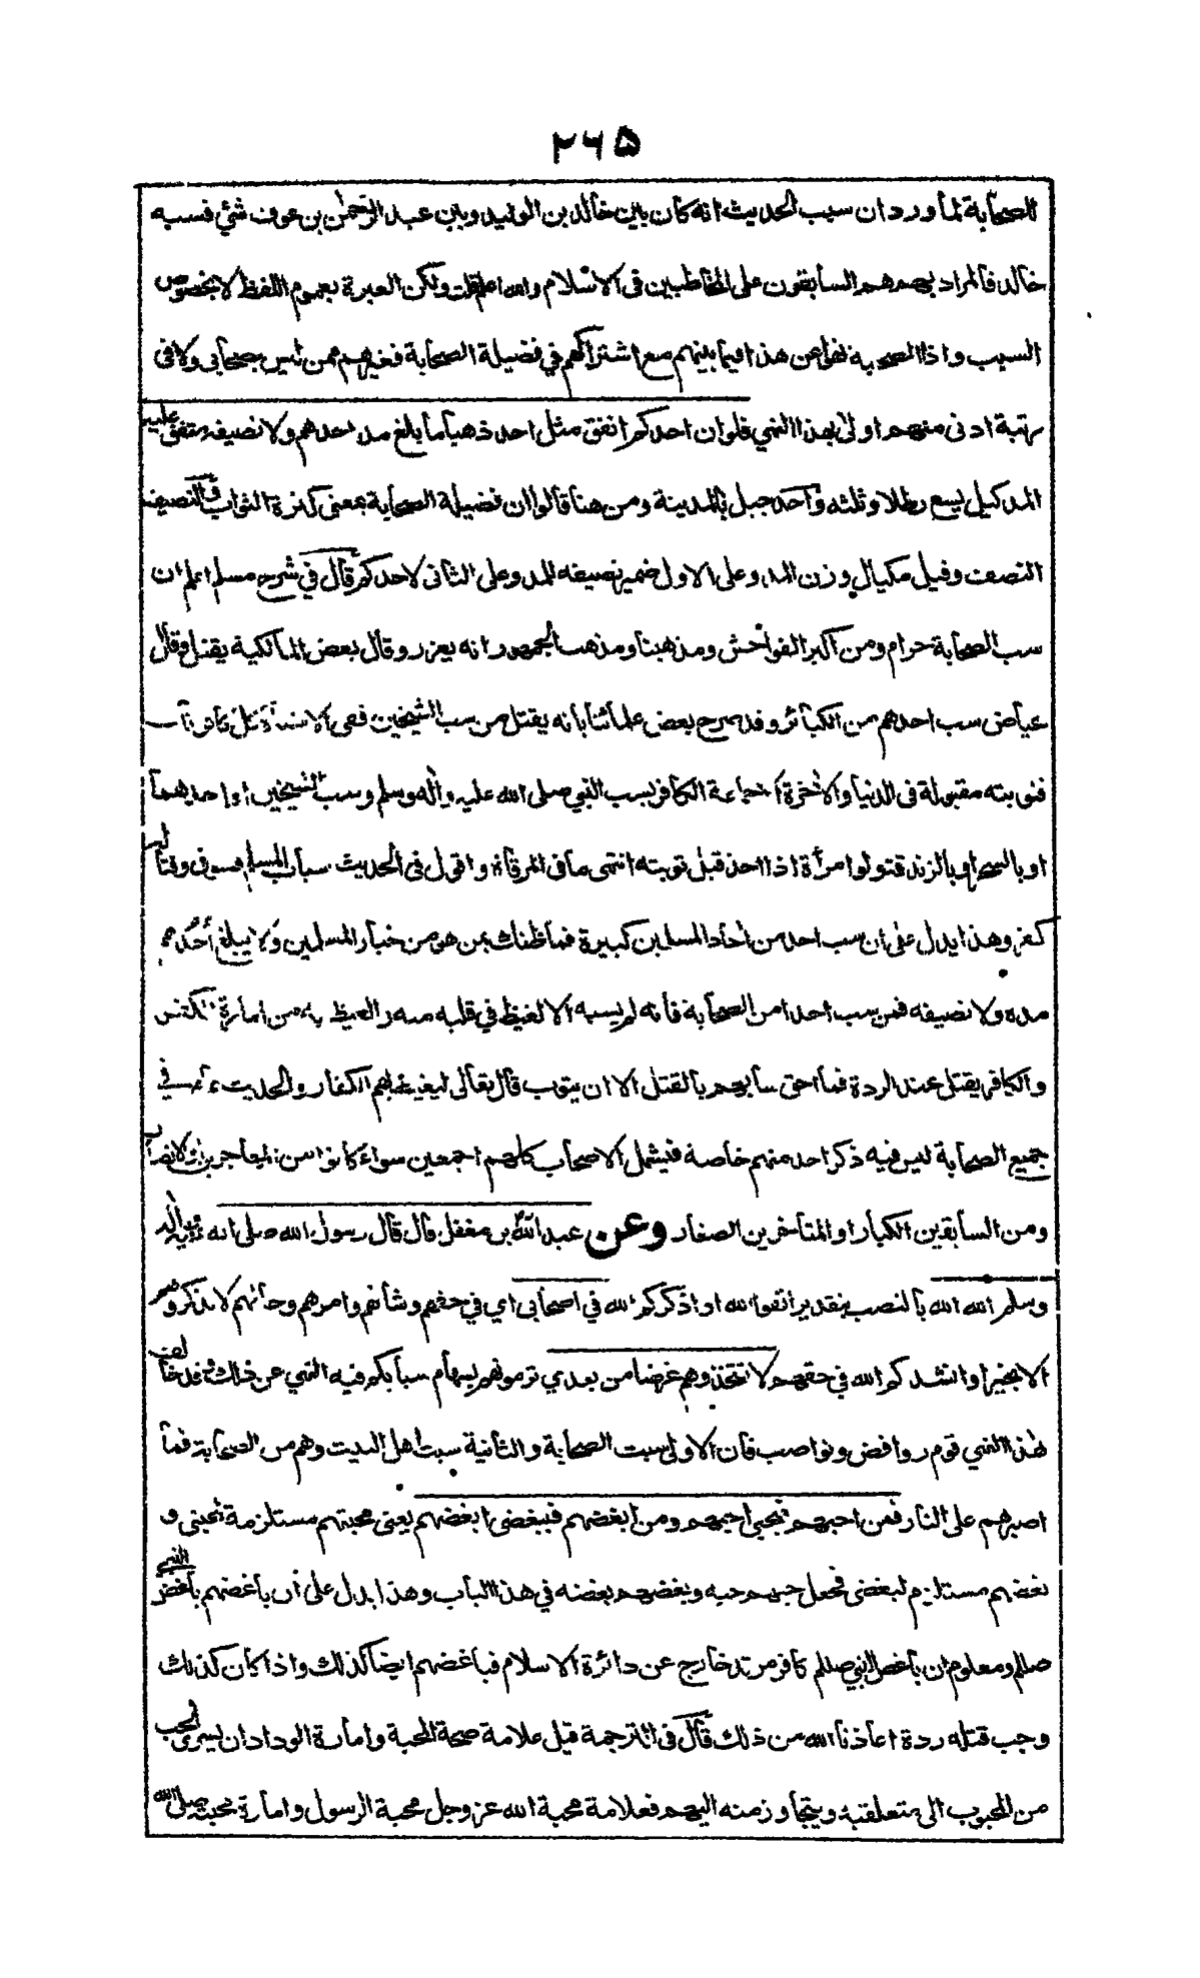 ٢٦٥
للصحابة لما ورد ان سبب الحديث انه كان بين خالد بن الوليد وبين عبد الرحمن بن عوف شئ فسبه
خالد فالمراد بهم السابقون على المخاطبين فى الاسلام والله اعلم قلت ولكن العبرة بعموم اللفظ لا بخصوص
السبب واذا الصحابة نهوا عن هذا فيما بينهم مع اشتراكهم في فضيلة الصحابة فغيرهم ممن ليس بصحابي ولا فى
رتبة ادنى منهم اولى بهذا النهي فلو ان احدكم انفق مثل احد ذهبا ما بلغ مد احدهم ولا نصيفه متفق عليه
المد كيل يسع رطلا وثلثه واحد جبل بالمدينة ومن هنا قالوا ان فضيلة الصحابة بمعنى كثرة الثواب والنصيف
النصف وقيل مكيال وزن المد وعلى الاول ضمير نصيفه للمد وعلى الثانى لاحدكم قال في شرح مسلم اعلم ان
سب الصحابة حرام ومن اكبر الفواحش ومذهبنا ومذهب الجمهور انه يعزر وقال بعض المالكية يقتل وقال
عياض سب احدهم من الكبائر وقد صرح بعض علمائنا بانه يقتل من سب الشيخين ففى الاشباه كل كافر تاب
فتوبته مقبولة فى الدنيا والاخرة الا جماعة الكافر بسب النبي صلى الله عليه واله وسلم وسب الشيخين او احدهما
او بالسحر او بالزندقة ولو امرأة اذا اخذ قبل توبته انتهى ما فى المرقاة واقول فى الحديث سباب المسلم فسوق وقتاله
كفر وهذا يدل على ان سب احد من احاد المسلمين كبيرة فما ظنك بمن هو من خيار المسلمين ولا يبلغ احدهم
مده ولا نصيفه فمن سب احدا من الصحابة فانه لم يسبه الا لغيظ في قلبه منه والغيظ بهم من امارة الكفر
والكافر يقتل عند الردة فما احق سابهم بالقتل الا ان يتوب قال تعالى ليغيظ بهم الكفار والحديث في
جميع الصحابة ليس فيه ذكر احد منهم خاصة فيشمل الاصحاب كلهم اجمعين سواء كانوا من المهاجرين او الانصار
ومن السابقين الكبار او المتاخرين الصغار وعن عبد الله بن مغفل قال قال رسول الله صلى الله عليه واله
وسلم الله الله بالنصب بتقدير اتقوا الله او اذكركم الله في اصحابي اي في حقهم وشانهم وامرهم وحالهم لا تذكروهم
الا بخير او انشدكم الله في حقهم لا تتخذوهم غرضا من بعدي ترمونهم بسهام سبابكم فيه النهي عن ذلك وقد خالف
هذا النهي قوم روافض ونواصب فان الاولى سبت الصحابة والثانية سبت اهل البيت وهم من الصحابة فما
اصبرهم على النار فمن احبهم فبحبي احبهم ومن ابغضهم فببغضي ابغضهم يعنى محبتهم مستلزمة لحبنى و
بغضهم مستلزم لبغضى فجعل حبهم حبه وبغضهم بغضه في هذا الباب وهذا يدل على ان باغضهم باغض النبي
صللم ومعلوم ان باغض النبي صللم كافر مرتد خارج عن دائرة الاسلام فباغضهم ايضا كذلك واذا كان كذلك
وجب قتله ردة اعاذنا الله من ذلك قال فى الترجمة قيل علامة صحة المحبة وامارة الوداد ان يسرى الحب
من المحبوب الى متعلقيه ويتجاوز منه اليهم فعلامة محبة الله عز وجل محبة الرسول وامارة محبته صلى الله